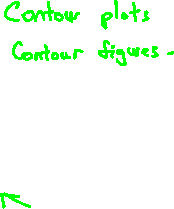 Contour plots
Contour figures -